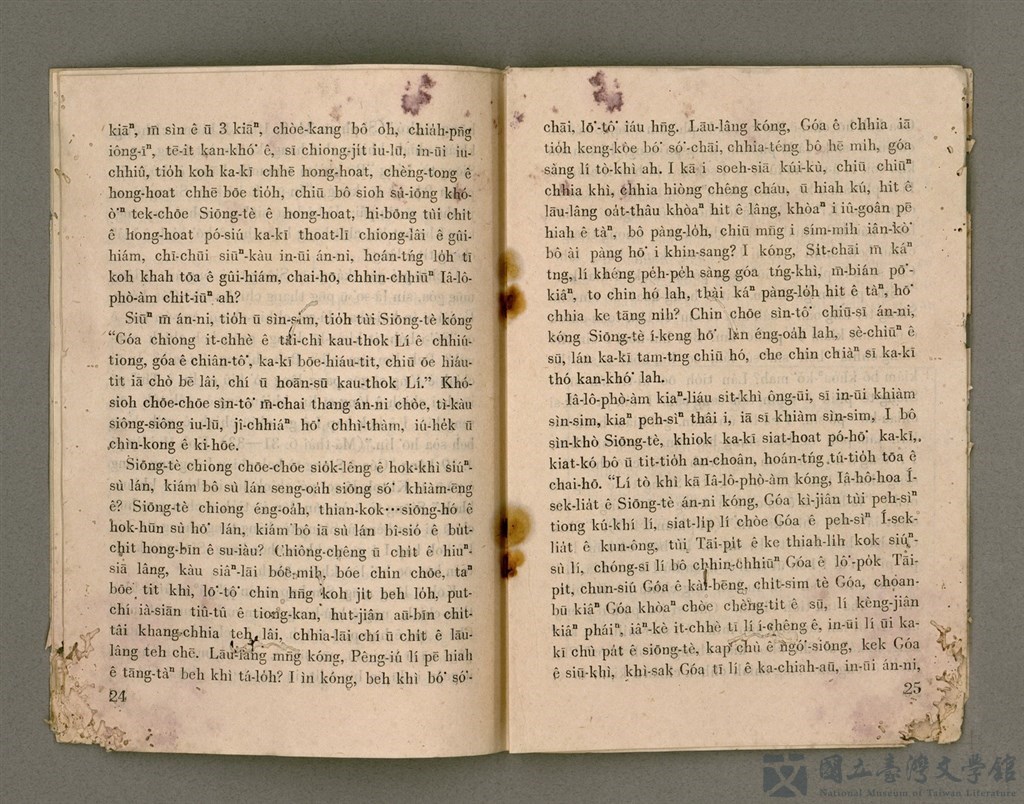 kiāⁿ, m̄ sìn ê ū 3 kiāⁿ, chòe-kang bô oh, chia̍h-pn̄g
iông-īⁿ, tē-it kan-khó͘ ê, sī chiong-ji̍t iu-lū, in-ūi iu-
chhiû, tio̍h koh ka-kī chhē hong-hoat, chèng-tong ê
hong-hoat chhē bōe tio̍h, chiū bô sioh sú-iōng khó-
ò͘ⁿ tek-chōe Siōng-tè ê hong-hoat, hi-bōng tùi chit
ê hong-hoat pó-siú ka-kī thoat-lī chiong-lâi ê gûi-
hiám, chī-chūi siūⁿ-kàu in-ūi án-ni, hoán-tńg lo̍h tī
koh khah tōa ê gûi-hiám, chai-hō, chhin-chhiūⁿ Iâ-lô-
phò-àm chit-iūⁿ ah?
Siūⁿ m̄ án-ni, tio̍h ū sìn-sim, tio̍h tùi Siōng-tè kóng
“Góa chiong it-chhè ê tāi-chì kau-thok Lí ê chhiú-
tiong, góa ê chiân-tô͘, ka-kī bōe-hiáu-tit, chiū ōe hiáu-
tit iā chò bē lâi, chí ū hoān-sū kau-thok Lí.” Khó-
sioh chōe-chōe sìn-tô͘ m̄-chai thang án-ni chòe, tì-kàu
siông-siông iu-lū, jī-chhiáⁿ hō͘ chhì-thàm, iú-he̍k ū
chìn-kong ê ki-hōe.
Siōng-tè chiong chōe-chōe sio̍k-lêng ê hok-khì siúⁿ-
sù lán, kiám bô sù lán seng-oa̍h siōng só͘ khiàm-ēng
ê? Siōng-tè chiong éng-oa̍h, thian-kok⋯siōng-hó ê
hok-hūn sù hō͘ lán, kiám bô iā sù lán bî-sió ê bu̍t-
chit hong-bīn ê su-iàu? Chiông-chêng ū chi̍t ê hiuⁿ-
siā lâng, kàu siâⁿ-lāi bóe-mih, bóe chin chōe, taⁿ
bōe tit khì, lō͘-tô͘ chin hn̄g koh ji̍t beh lo̍h, put-
chí ià-siān tiû-tû ê tiong-kan, hut-jiân aū-bīn chi̍t-
tâi khang-chhia teh lâi, chhia-lāi chí ū chi̍t ê lāu-
lâng teh chē. Lāu-lâng mn̄g kóng, Pêng-iú lí pē hiah
ê tāng-tàⁿ beh khì tá-lo̍h? I ìn kóng, beh khì bó͘ só͘-
24
chāi, lō͘-tô͘ iáu hn̄g. Lāu-lâng kóng, Góa ê chhia iā
tio̍h keng-kòe bó͘ só͘-chāi, chhia-téng bô hē mih, góa
sàng lí tò-khì ah. I kā i soeh-siā kúi-kù, chiū chiūⁿ
chhia khì, chhia hiòng chêng cháu, ū hiah kú, hit ê
lāu-lâng oa̍t-thâu khòaⁿ hit ê lâng, khòaⁿ i iû-goân pē
hiah ê tàⁿ, bô pàng-lo̍h, chiū mn̄g i sím-mih iân-kò͘
bô ài pàng hō͘ i khin-sang? I kóng, Sit-chāi m̄ káⁿ
tng, lí khéng pe̍h-pe̍h sàng góa tńg-khì, m̄-bián pō͘-
kiâⁿ, to chin hó lah, thài káⁿ pàng-lo̍h hit ê tàⁿ, hō͘
chhia ke tāng nih? Chin chōe sìn-tô͘ chiū-sī án-ni,
kóng Siōng-tè í-keng hō͘ lán éng-oa̍h lah, sè-chiūⁿ ê
sū, lán ka-kī tam-tng chiū hó, che chin chiàⁿ sī ka-kī
thó kan-khó͘ lah.
Iâ-lô-phò-àm kiaⁿ-liáu sit-khì ông-ūi, sī in-ūi khiàm
sìn-sim, kiaⁿ peh-sìⁿ thâi i, iā sī khiàm sìn-sim, I bô
sìn-khò Siōng-tè, khiok ka-kī siat-hoat pó-hō͘ ka-kī,
kiat-kó bô ū tit-tio̍h an-choân, hoán-tńg tú-tio̍h tōa ê
chai-hō. “Lí tò khì kā Iâ-lô-phò-àm kóng, Iâ-hô-hoa Í-
sek-lia̍t ê Siōng-tè án-ni kóng, Góa kì-jiân tùi peh-sìⁿ
tiong kú-khí lí, siat-li̍p lí chòe Góa ê peh-sìⁿ Í-sek-
lia̍t ê kun-ông, tùi Tāi-pit ê ke thiah-li̍h kok siúⁿ-
sù lí, chóng-sī lí bô chhin-chhiūⁿ Góa ê lô͘-po̍k Tāi-
pit, chun-siú Góa ê kài-bēng, chi̍t-sim tè Góa, choan-
bū kiâⁿ Góa khòaⁿ chòe chèng-tit ê sū, lí kèng-jiân
kiâⁿ pháiⁿ, iâⁿ-kè it-chhè tī lí í-chêng ê, in-ūi lí ūi ka-
kī chù pa̍t ê siōng-tè, kap chù ê ngó͘-siōng, kek Góa
ê siū-khì, khì-sak Góa tī lí ê ka-chiah-aū, in-ūi án-ni,
25
國立臺灣文學館
National Museum of Taiwan Literature